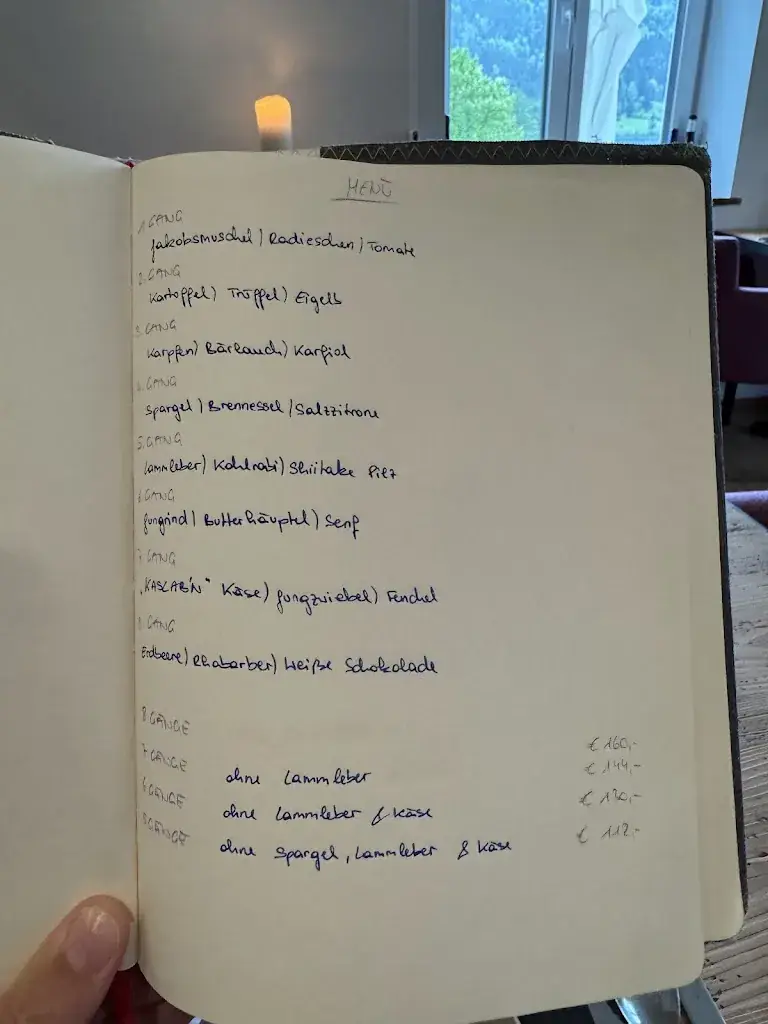 MENÜ
1. GANG
Jakobsmuschel | Radieschen | Tomate
2. GANG
Kartoffel | Trüffel | Eigelb
3. GANG
Karpfen | Bärlauch | Karfiol
4. GANG
Spargel | Brennessel | Salzzitrone
5. GANG
Lammleber | Kohlrabi | Shiitake Pilz
6. GANG
Jungrind | Butterhäuptel | Senf
7. GANG
"KASLAB'N" Käse | Jungzwiebel | Fenchel
8. GANG
Erdbeere | Rhabarber | Weiße Schokolade
8 GÄNGE € 160,-
7 GÄNGE ohne Lammleber € 144,-
6 GÄNGE ohne Lammleber & Käse € 130,-
5 GÄNGE ohne Spargel, Lammleber & Käse € 112,-